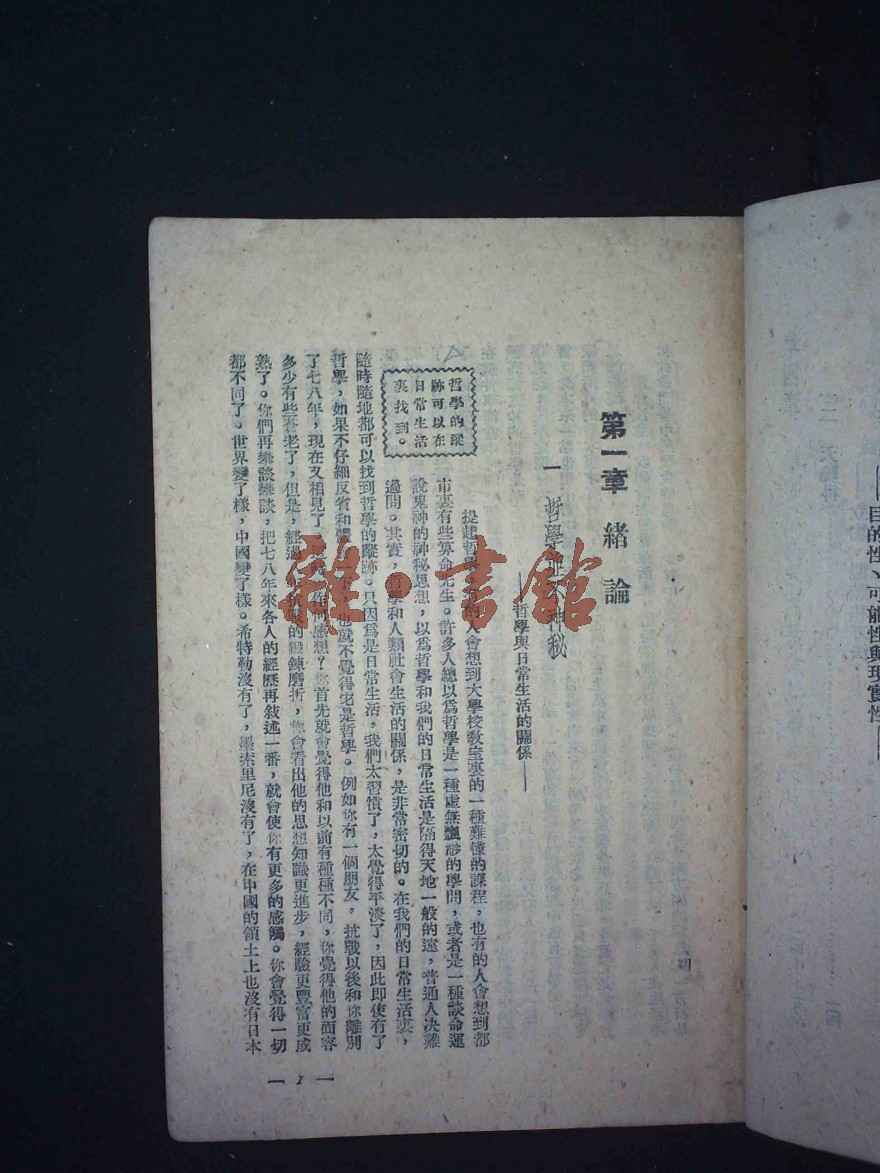 第一章 緒論
一 哲學並不神秘
——哲學與日常生活的關係——
哲學的蹤
跡可以在
日常生活
裏找到。
提起哲學,有的人會想到大學校教室裏的一種難懂的課程,也有的人會想到都
市裏有些算命先生。許多人總以爲哲學是一種虛無飄渺的學問,或者是一種談命運
說鬼神的神秘思想,以爲哲學和我們的日常生活是隔得天地一般的遠,普通人决難
過問。其實,哲學和人類社會生活的關係,是非常密切的。在我們的日常生活裏,
隨時隨地都可以找到哲學的蹤跡。只因爲是日常生活,我們太習慣了,太覺得平淡了,因此即使有了
哲學,如果不仔細反省和 也就不覺得它是哲學。例如你有一個朋友,抗戰以後和你離別
了七八年,現在又相見了, 你有何感想?你首先就會覺得他和以前有種種不同,你覺得他的面容
多少有些蒼老了,但是,經過 抗戰的鍛鍊磨折,你會看出他的思想知識更進步,經驗更豐富更成
熟了。你們再談談,把七八年來各人的經歷再敘述一番,就會使你有更多的感觸。你會覺得一切
都不同了。世界變了樣,中國變了樣。希特勒沒有了,墨索里尼沒有了,在中國的領土上也沒有日本
— 1 —
目的性、可能性與現實性
雅·書館